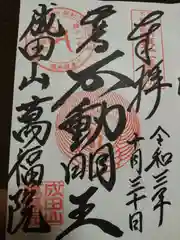 奉拝
令和三年
十月三十日
不動明王
成田山萬福院
成田山